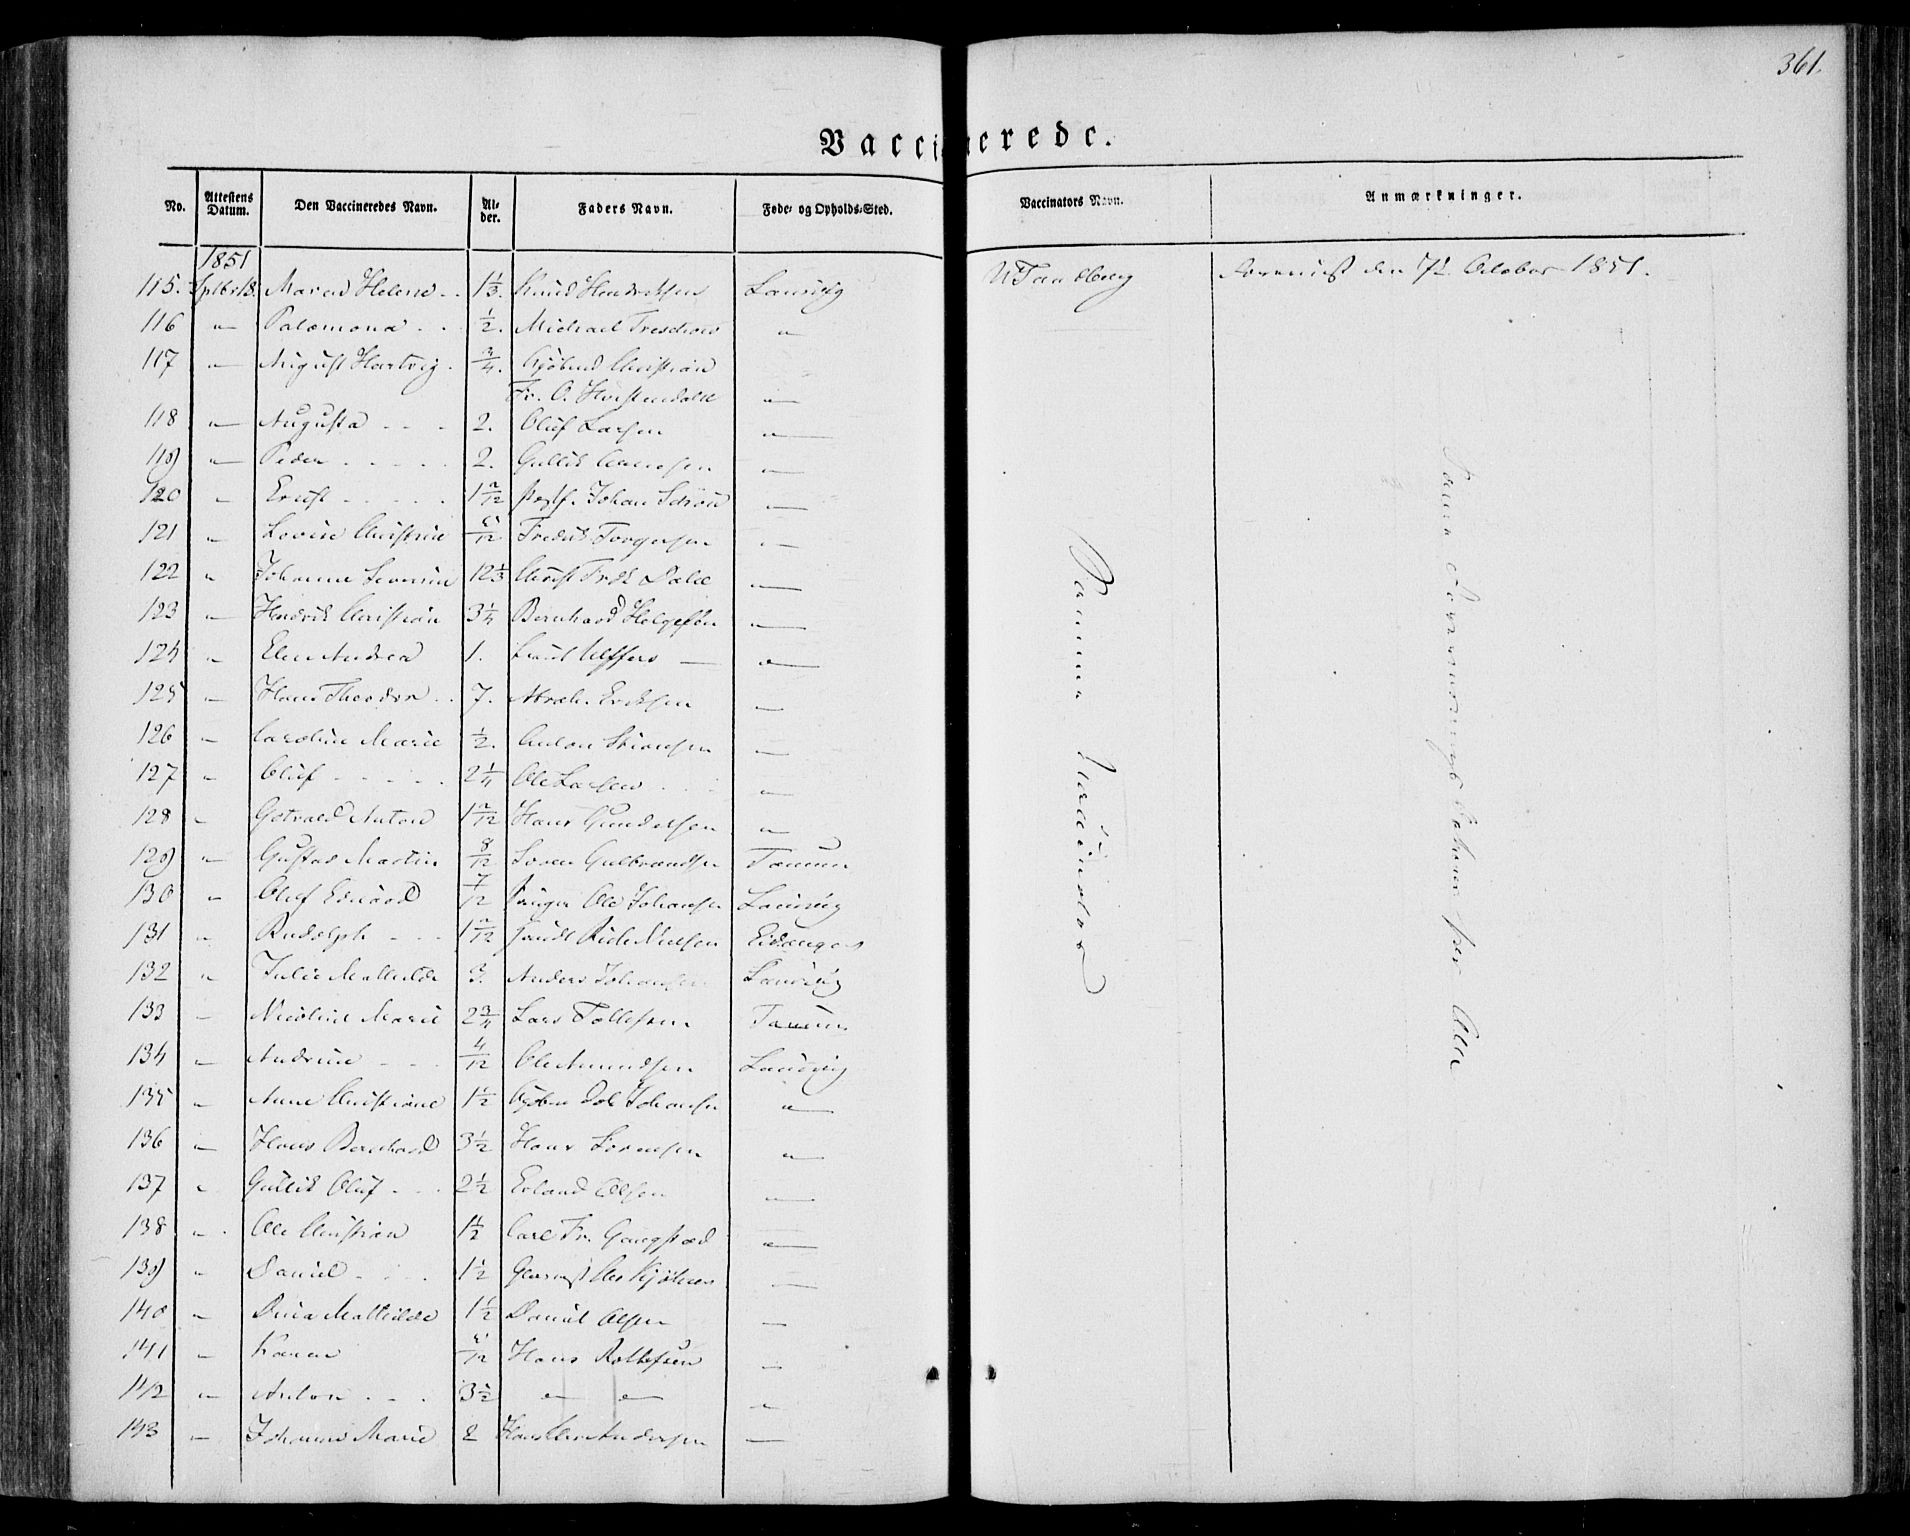 361.
Vaccinerede.
No. Attestens Datum. Den Vaccineredes Navn. Al-der. Faders Navn. Føde- og Opholds-Sted. Vaccinators Navn. Anmærkninger.
1851
115. Sptbr 13. Maren Helene 1 1/3. Knud Hendriksen Laurvig Tandberg den 7de October 1851.
116 " Palæmona 1/2. Michael Treschow "
117 " August Hartvig 3/4. Kjøbmd Christian
Fr. O. "
118 " Augusta 2. Oluf Larsen "
119 " Peder 2. Gullik "
120 " Ernst 1 2/12 Johan "
121 " Lovise Christine /12 Fredrik Torgersen "
122 " Johanne Severine 12 1/3 Christ Fredk Dahl "
123 " Hendrik Christian 3 1/4 Bernhard Helgesen "
124 " Elen Andrea 1. "
125 " Hans Theodor 7. Abrah. Eriksen "
126 " Caroline Marie 1/2. Anton "
127 " Oluf 2 1/4 Ole Larsen "
128 " Gotvald Anton 1 2/12 Hans Gundersen "
129 " Gustav Martin 8/12 Soren Gulbrandsen Tanum
130 " Oluf Edvard 7/12 Ole Johansen Laurvig
131 " Rudolph 1 2/12 Nielsen Eidanger
132 " Julie Mathilde 3. Anders Johansen Laurvig
133 " Nicoline Marie 2 3/4 Lars Tollefsen Tanum
134 " Andrine 4/12 Ole Amundsen Laurvig
135 " Anne Christiane 1 1/2 Johansen "
136 " Hans Bernhard 3 1/2 Hans Sorensen "
137 " Gullik Oluf 2 1/2 Erland Olsen "
138 " Ole Christian 1 1/2 Carl Fr. Gangstad "
139 " Daniel 1 1/2 "
140 " Dina Mathilde 1 1/2 Daniel Olsen "
141 " Karen /12 Hans Rollefsen "
142 " Anton 3 1/2 " " "
143 " Johanne Marie 2 Andersen "
Samme
Samme for Alle